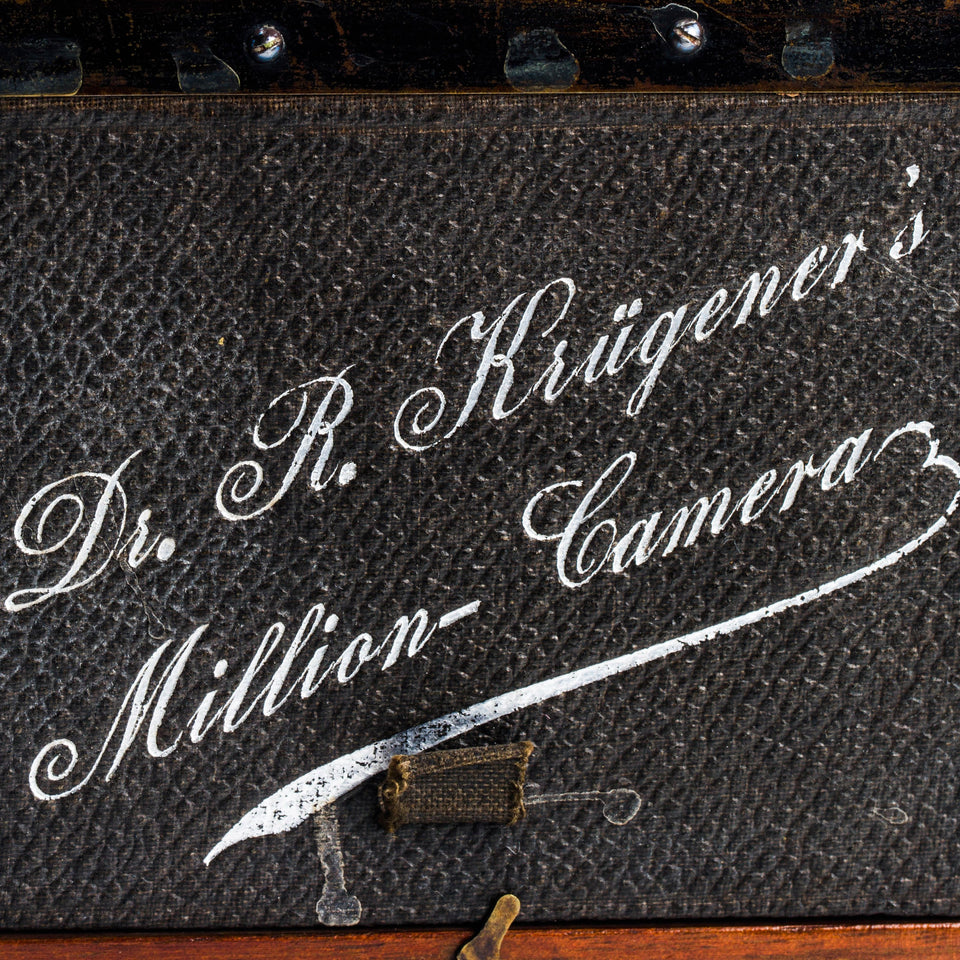 Dr. R. Krügener's
Million-Camera